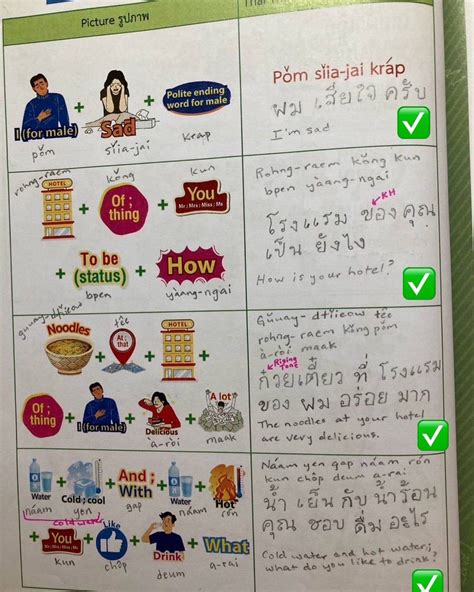 Picture รูปภาพ
I (for male)
pǒm
+
Sad
sǐia-jai
+
Polite ending
word for male
krap
Pǒm sǐia-jai kráp
ผม เสียใจ ครับ
I'm sad
rohng-raem
HOTEL
+
kǒng
Of ;
thing
+
kun
You
Mr ; Mrs ; Miss ; Ms
+
To be
(status)
bpen
+
How
yàang-ngai
Rohng-raem kǒng kun
bpen yàang-ngai
KH
โรงแรม ของ คุณ
เป็น ยังไง
How is your hotel?
gǔuay-dtǐieow
Noodles
+
têe
At ; that
+
HOTEL
+
Of ;
thing
+
I (for male)
+
Delicious
à-ròi
+
A lot
maak
Gǔuay-dtǐieow têe
rohng-raem kǒng pǒm
à-ròi maak
Rising
Tone
ก๋วยเตี๋ยว ที่ โรงแรม
ของ ผม อร่อย มาก
The noodles at your hotel
are very delicious.
Water
náam
+
Cold ; cool
yen
cold water
+
And ;
With
gap
+
Water
náam
+
Hot
rón
+
You
Mr ; Mrs ; Miss ; Ms
kun
+
Like
chôp
+
Drink
deum
+
What
a-rai
Náam yen gap náam rón
kun chôp deum a-rai
น้ำ เย็น กับ น้ำ ร้อน
คุณ ชอบ ดื่ม อะไร
Cold water and hot water;
what do you like to drink?